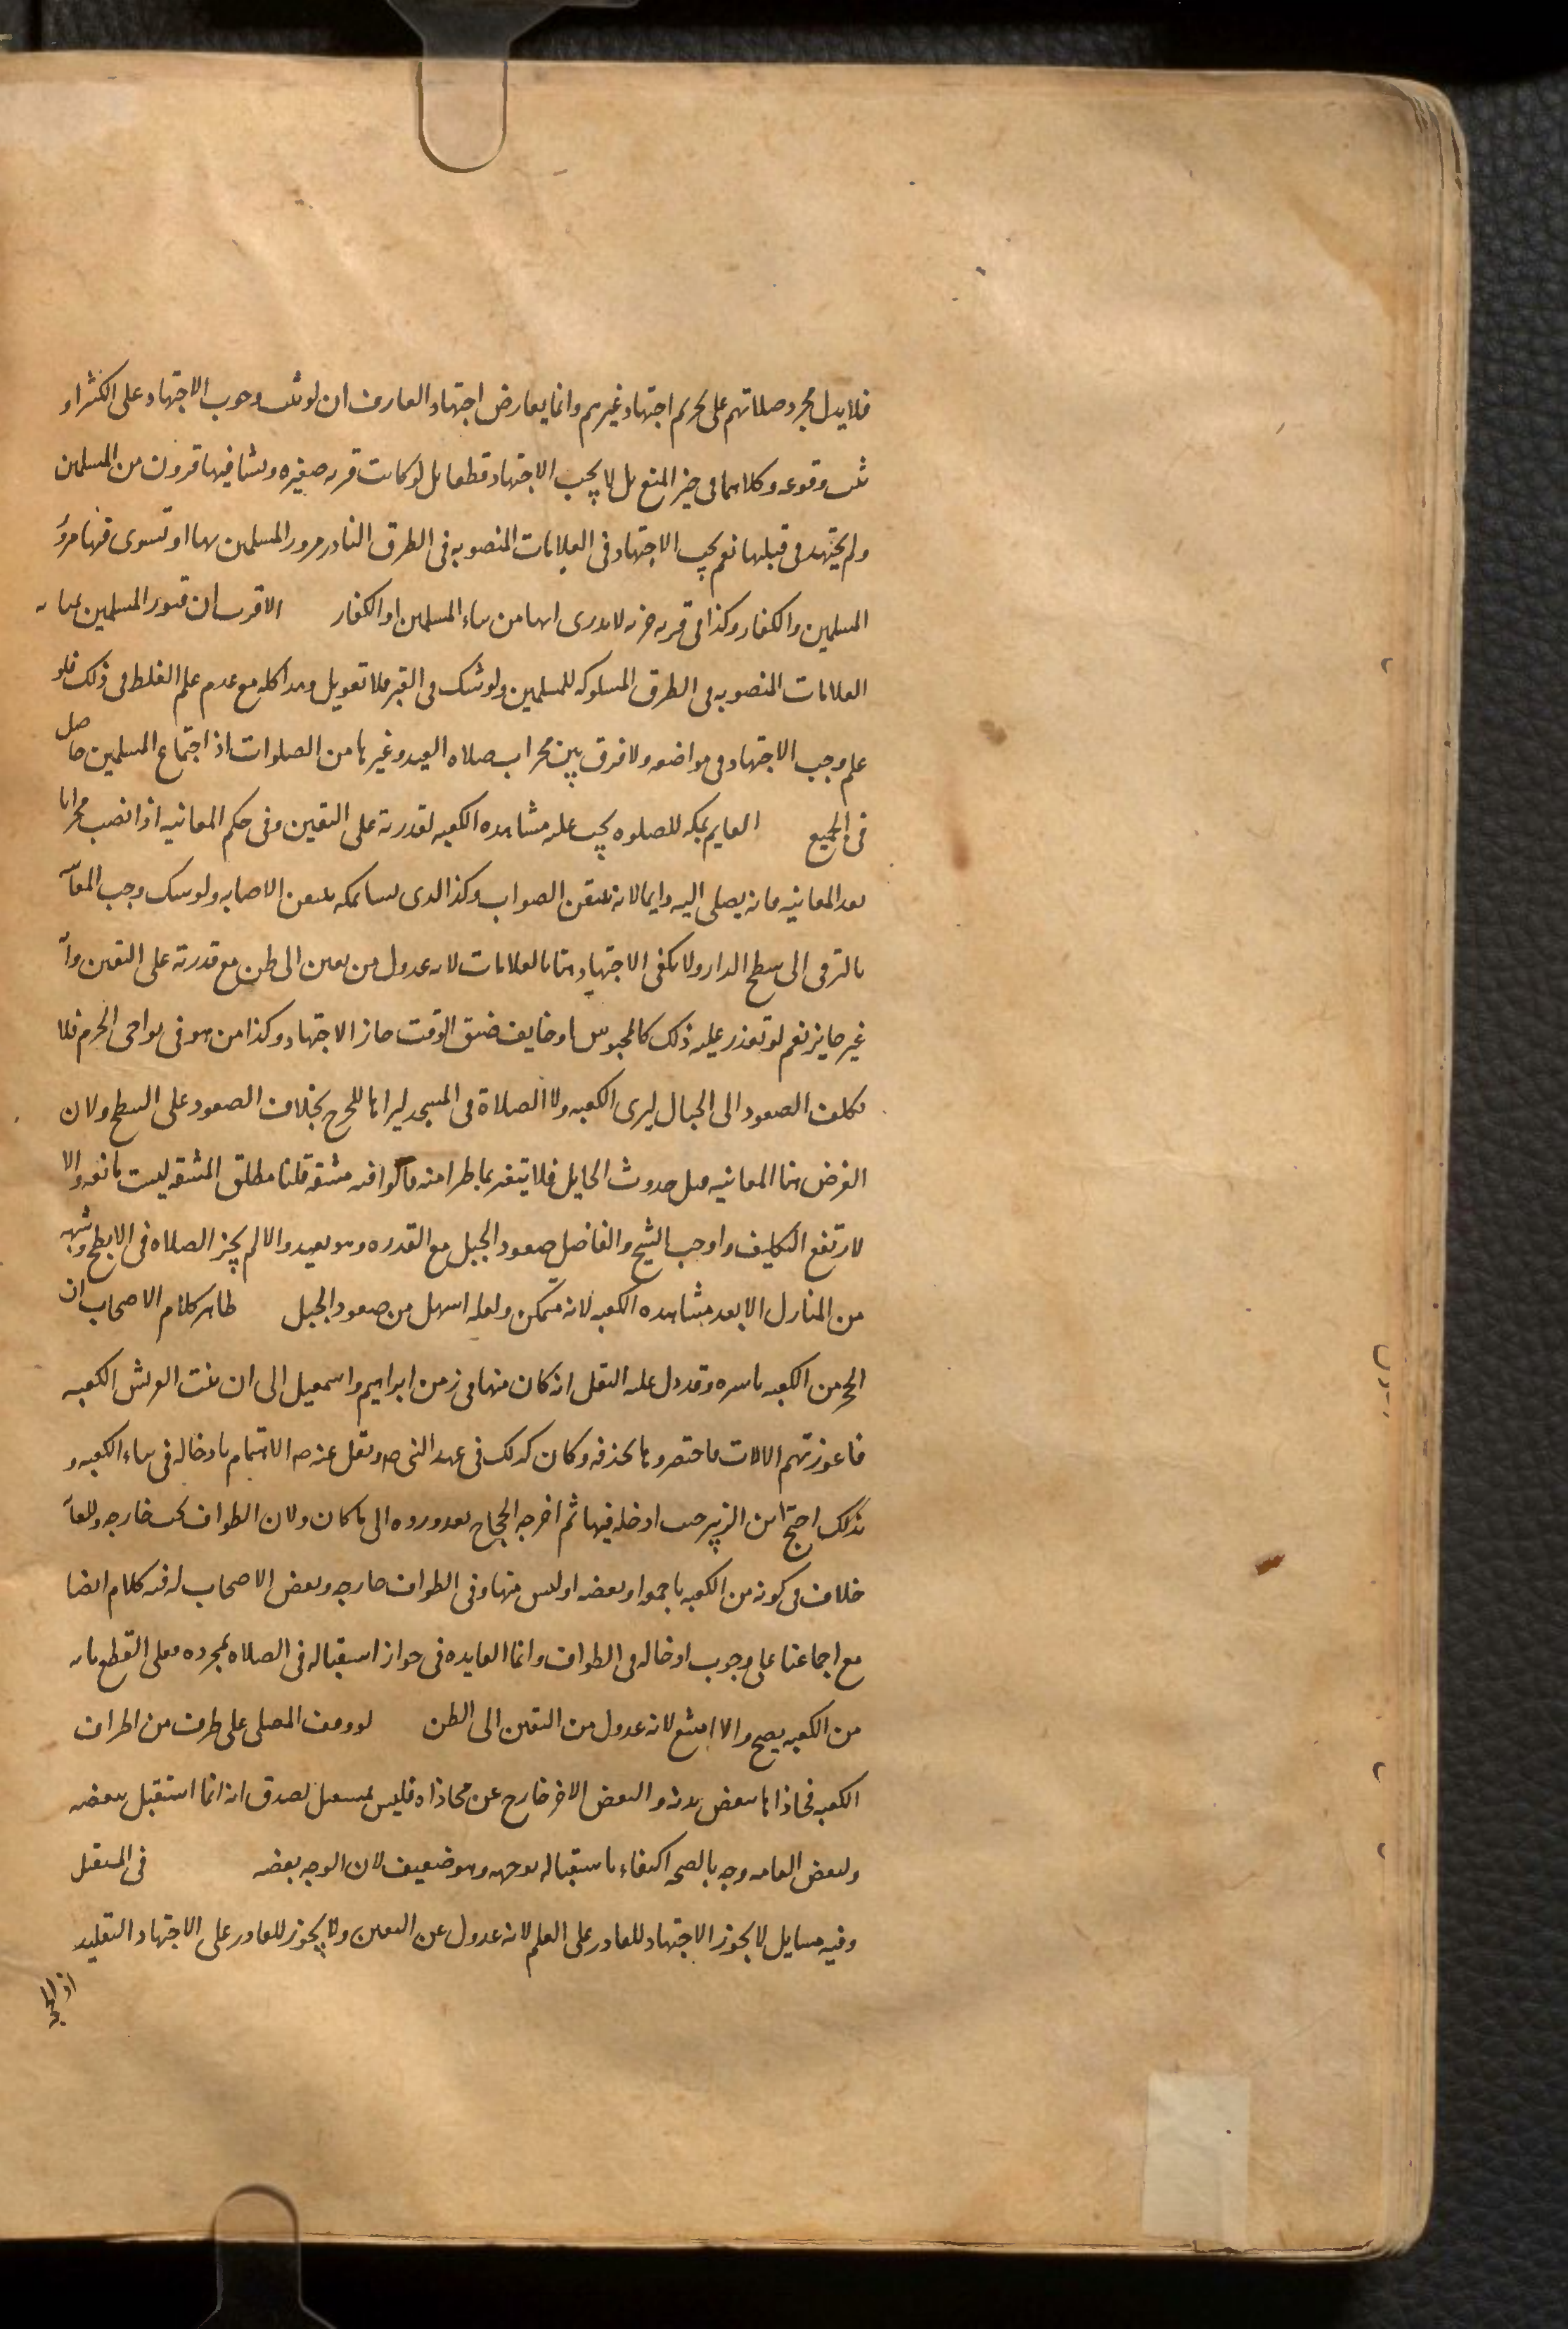 فلا يدل مجرد صلاتهم على تحريم اجتهاد غيرهم وانما يعارض اجتهاد العارف ان لو ثبت وجوب الاجتهاد على الكثر او
ثبت وقوعه وكلاهما فى حيز المنع بل لا يجب الاجتهاد قطعا بل لو كانت قريه صغيره ونشا فيها قرون من المسلمين
ولم يجتهد فى قبلتها نعم يجب الاجتهاد فى العلامات المنصوبه فى الطرق النادر مرور المسلمين بها او تسوى فيها مرور
المسلمين والكفار وكذا فى قريه خربه لا يدرى انها من بناء المسلمين او الكفار الاقرب ان قبور المسلمين بمثابه
العلامات المنصوبه فى الطرق المسلوكه للمسلمين ولو شك فى القبر فلا تعويل وهذا كله مع عدم علم الغلط فى ذلك فلو
علم وجب الاجتهاد فى مواضعه ولا فرق بين محراب صلاه العيد وغيرها من الصلوات اذ اجتماع المسلمين حاصل
فى الجميع القايم بمكه للصلوه يجب عليه مشاهده الكعبه لقدرته على اليقين وفى حكم المعاينه اذا نصب محرابا
بعد المعاينه فانه يصلى اليه دايما لانه يتيقن الصواب وكذا الذى نشا بمكه يتيقن الاصابه ولو شك وجب المعاينه
بالترقى الى سطح الدار ولا يكفى الاجتهاد هنا بالعلامات لانه عدول من يقين الى ظن مع قدرته على اليقين وانه
غير جايز نعم لو تعذر عليه ذلك كالمحبوس او خايف ضيق الوقت جاز الاجتهاد وكذا من هو فى نواحى الحرم فلا
يكلف الصعود الى الجبال ليرى الكعبه ولا الصلاة فى المسجد ليراها للحرج بخلاف الصعود على السطح ولان
الغرض هنا المعاينه قبل حدوث الحايل فلا يتغير بما طرا منه قالوا فيه مشقه قلنا مطلق المشقه ليست مانعه والا
لارتفع التكليف واوجب الشيخ والفاضل صعود الجبل مع القدره وهو بعيد والا لم يجز الصلاه فى الابطح وشبهه
من المنازل الا بعد مشاهده الكعبه لانه متمكن ولعله اسهل من صعود الجبل ظاهر كلام الاصحاب ان
الحجر من الكعبه باسره وقد دل عليه النقل انه كان منها فى زمن ابراهيم واسمعيل الى ان بنت القريش الكعبه
فاعوزتهم الالات فاختصروها بحذفه وكان كذلك فى عهد النبى ص ونقل عنه ص الاهتمام بادخاله فى بناء الكعبه و
بذلك احتج ابن الزبير حيث ادخله فيها ثم اخرجه الحجاج بعد ورده الى ما كان ولان الطواف يجب خارجه وللعامه
خلاف فى كونه من الكعبه باجمعه او بعضه او ليس منها وفى الطواف خارجه وبعض الاصحاب له فيه كلام ايضا
مع اجماعنا على وجوب ادخاله فى الطواف وانما الفايده فى جواز استقباله فى الصلاه بمجرده فعلى القطع بانه
من الكعبه يصح والا امتنع لانه عدول من اليقين الى الظن لو وقف المصلى على طرف من اطراف
الكعبه فحاذاها ببعض بدنه والبعض الاخر خارج عن محاذاه فليس بمستقبل لصدق انه انما استقبل ببعضه
ولبعض العامه وجه بالصحه اكتفاء باستقباله بوجهه وهو ضعيف لان الوجه بعضه فى المستقبل
وفيه مسايل لا يجوز الاجتهاد للقادر على العلم لانه عدول عن اليقين ولا يجوز للقادر على الاجتهاد التقليد